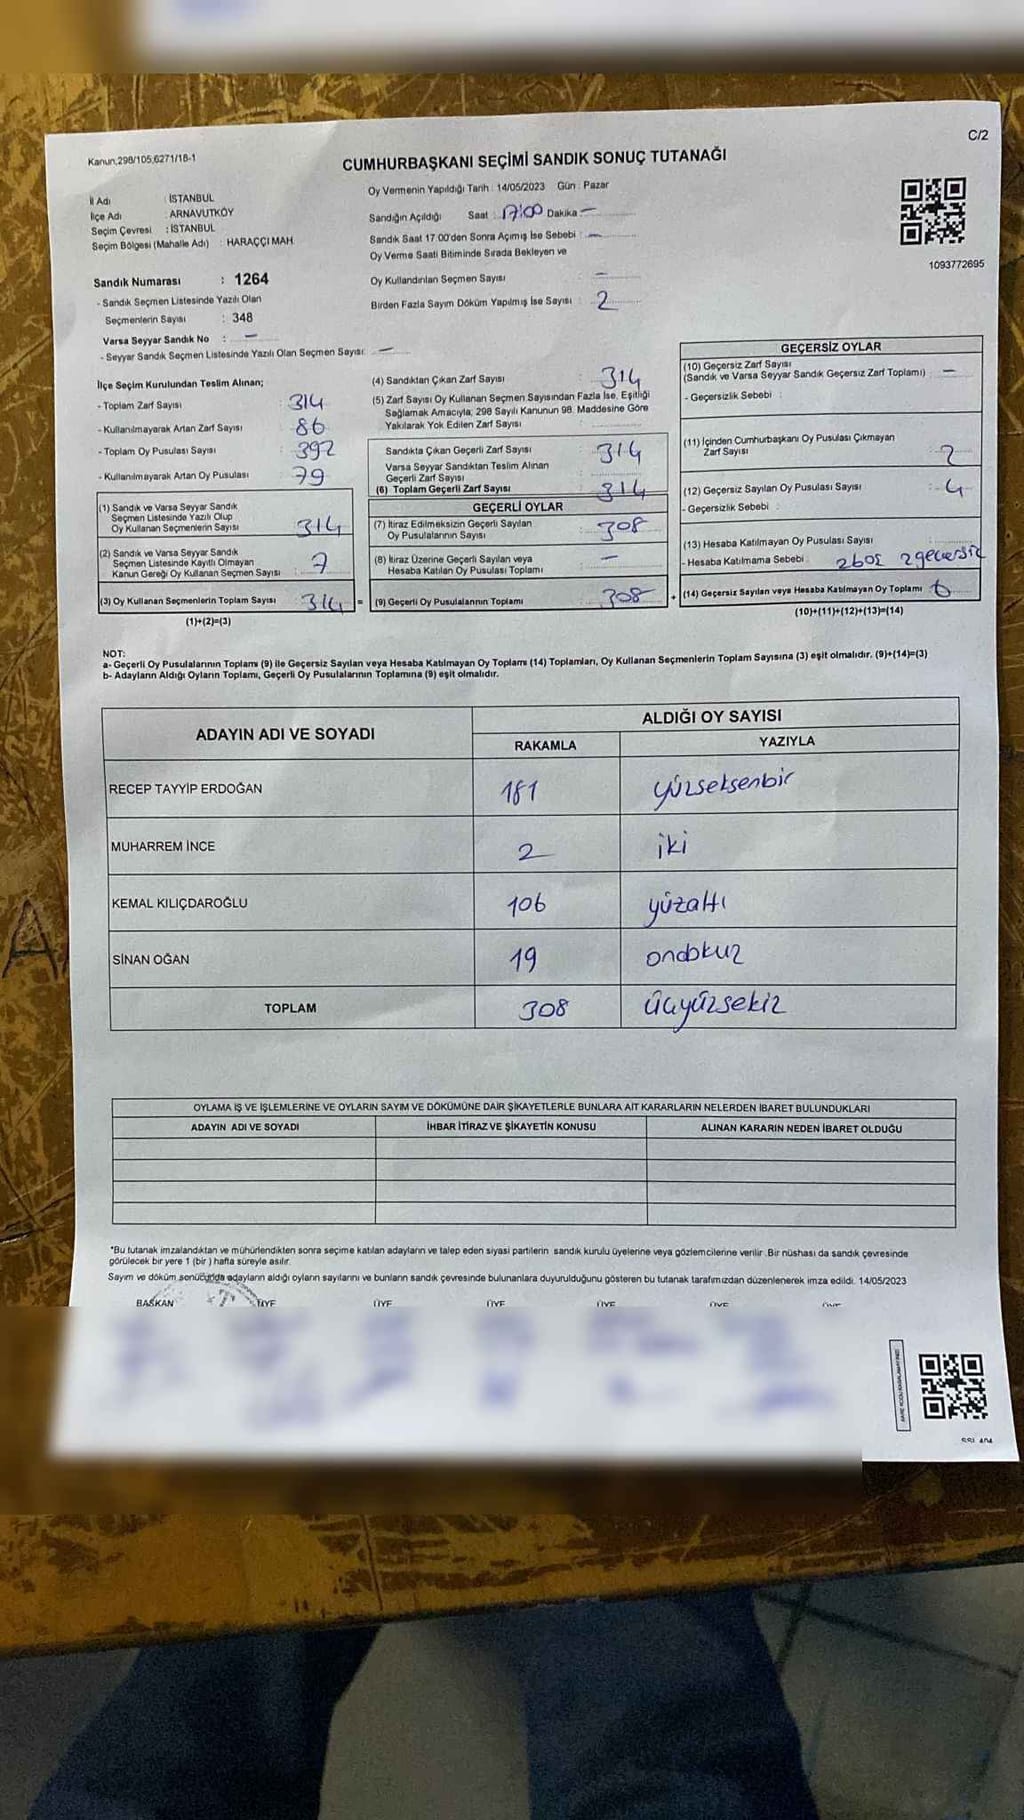 C/2
Kanun,298/105,6271/18-1
CUMHURBAŞKANI SEÇİMİ SANDIK SONUÇ TUTANAĞI
1093772695
İl Adı : İSTANBUL
İlçe Adı : ARNAVUTKÖY
Seçim Çevresi : İSTANBUL
Seçim Bölgesi (Mahalle Adı) : HARAÇÇI MAH.
Sandık Numarası : 1264
- Sandık Seçmen Listesinde Yazılı Olan
Seçmenlerin Sayısı : 348
Varsa Seyyar Sandık No : –
- Seyyar Sandık Seçmen Listesinde Yazılı Olan Seçmen Sayısı: –
Oy Vermenin Yapıldığı Tarih : 14/05/2023 Gün : Pazar
Sandığın Açıldığı Saat : 17:00 Dakika –
Sandık Saat 17.00'den Sonra Açımış İse Sebebi : –
Oy Verme Saati Bitiminde Sırada Bekleyen ve
Oy Kullandırılan Seçmen Sayısı –
Birden Fazla Sayım Döküm Yapılmış İse Sayısı : 2
İlçe Seçim Kurulundan Teslim Alınan;
- Toplam Zarf Sayısı : 314
- Kullanılmayarak Artan Zarf Sayısı : 86
- Toplam Oy Pusulası Sayısı : 392
- Kullanılmayarak Artan Oy Pusulası : 79
(1) Sandık ve Varsa Seyyar Sandık
Seçmen Listesinde Yazılı Olup
Oy Kullanan Seçmenlerin Sayısı : 314
(2) Sandık ve Varsa Seyyar Sandık
Seçmen Listesinde Kayıtlı Olmayan
Kanun Gereği Oy Kullanan Seçmen Sayısı : 7
(3) Oy Kullanan Seçmenlerin Toplam Sayısı : 314 =
(1)+(2)=(3)
(4) Sandıktan Çıkan Zarf Sayısı : 314
(5) Zarf Sayısı Oy Kullanan Seçmen Sayısından Fazla İse, Eşitliği
Sağlamak Amacıyla; 298 Sayılı Kanunun 98. Maddesine Göre
Yakılarak Yok Edilen Zarf Sayısı
Sandıkta Çıkan Geçerli Zarf Sayısı : 314
Varsa Seyyar Sandıktan Teslim Alınan
Geçerli Zarf Sayısı
(6) Toplam Geçerli Zarf Sayısı 314
GEÇERLİ OYLAR
(7) İtiraz Edilmeksizin Geçerli Sayılan
Oy Pusulalarının Sayısı : 308
(8) İtiraz Üzerine Geçerli Sayılan veya
Hesaba Katılan Oy Pusulası Toplamı : –
(9) Geçerli Oy Pusulalarının Toplamı : 308 +
GEÇERSİZ OYLAR
(10) Geçersiz Zarf Sayısı
(Sandık ve Varsa Seyyar Sandık Geçersiz Zarf Toplamı) : –
- Geçersizlik Sebebi :
(11) İçinden Cumhurbaşkanı Oy Pusulası Çıkmayan
Zarf Sayısı 2
(12) Geçersiz Sayılan Oy Pusulası Sayısı : 4
- Geçersizlik Sebebi :
(13) Hesaba Katılmayan Oy Pusulası Sayısı :
- Hesaba Katılmama Sebebi : 2boş 2geçersiz
(14) Geçersiz Sayılan veya Hesaba Katılmayan Oy Toplamı : 6
(10)+(11)+(12)+(13)=(14)
NOT:
a- Geçerli Oy Pusulalarının Toplamı (9) ile Geçersiz Sayılan veya Hesaba Katılmayan Oy Toplamı (14) Toplamları, Oy Kullanan Seçmenlerin Toplam Sayısına (3) eşit olmalıdır. (9)+(14)=(3)
b- Adayların Aldığı Oyların Toplamı, Geçerli Oy Pusulalarının Toplamına (9) eşit olmalıdır.
ADAYIN ADI VE SOYADI ALDIĞI OY SAYISI
RAKAMLA YAZIYLA
RECEP TAYYİP ERDOĞAN 181 yüzseksenbir
MUHARREM İNCE 2 iki
KEMAL KILIÇDAROĞLU 106 yüzaltı
SİNAN OĞAN 19 ondokuz
TOPLAM 308 üçyüzsekiz
OYLAMA İŞ VE İŞLEMLERİNE VE OYLARIN SAYIM VE DÖKÜMÜNE DAİR ŞİKAYETLERLE BUNLARA AİT KARARLARIN NELERDEN İBARET BULUNDUKLARI
ADAYIN ADI VE SOYADI İHBAR İTİRAZ VE ŞİKAYETİN KONUSU ALINAN KARARIN NEDEN İBARET OLDUĞU
*Bu tutanak imzalandıktan ve mühürlendikten sonra seçime katılan adayların ve talep eden siyasi partilerin sandık kurulu üyelerine veya gözlemcilerine verilir. Bir nüshası da sandık çevresinde
görülecek bir yere 1 (bir ) hafta süreyle asılır.
Sayım ve döküm sonucunda adayların aldığı oyların sayılarını ve bunların sandık çevresinde bulunanlara duyurulduğunu gösteren bu tutanak tarafımızdan düzenlenerek imza edildi. 14/05/2023
BAŞKAN ÜYE ÜYE ÜYE ÜYE ÜYE ÜYE
A